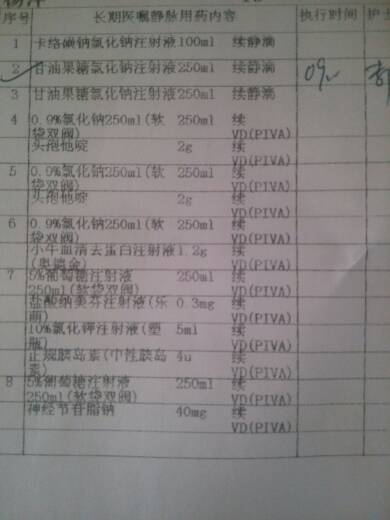 序号 长期医嘱静脉用药内容 执行时间 护士
1 卡络磺钠氯化钠注射液100ml 续静滴
2 甘油果糖氯化钠注射液250ml 续静滴 09
3 甘油果糖氯化钠注射液250ml 续静滴
4 0.9%氯化钠250ml(软 250ml 续
袋双阀) VD(PIVA)
头孢他啶 2g 续
VD(PIVA)
5 0.9%氯化钠250ml(软 250ml 续
袋双阀) VD(PIVA)
头孢他啶 2g 续
VD(PIVA)
6 0.9%氯化钠250ml(软 250ml 续
袋双阀) VD(PIVA)
小牛血清去蛋白注射液1.2g 续
(奥德金) VD(PIVA)
7 5%葡萄糖注射液 250ml 续
250ml(软袋双阀) VD(PIVA)
盐酸纳美芬注射液(乐 0.3mg 续
萌) VD(PIVA)
10%氯化钾注射液(塑 5ml 续
瓶) VD(PIVA)
正规胰岛素(中性胰岛 4u 续
素) VD(PIVA)
8 5%葡萄糖注射液 250ml 续
250ml(软袋双阀) VD(PIVA)
神经节苷脂钠 40mg 续
VD(PIVA)